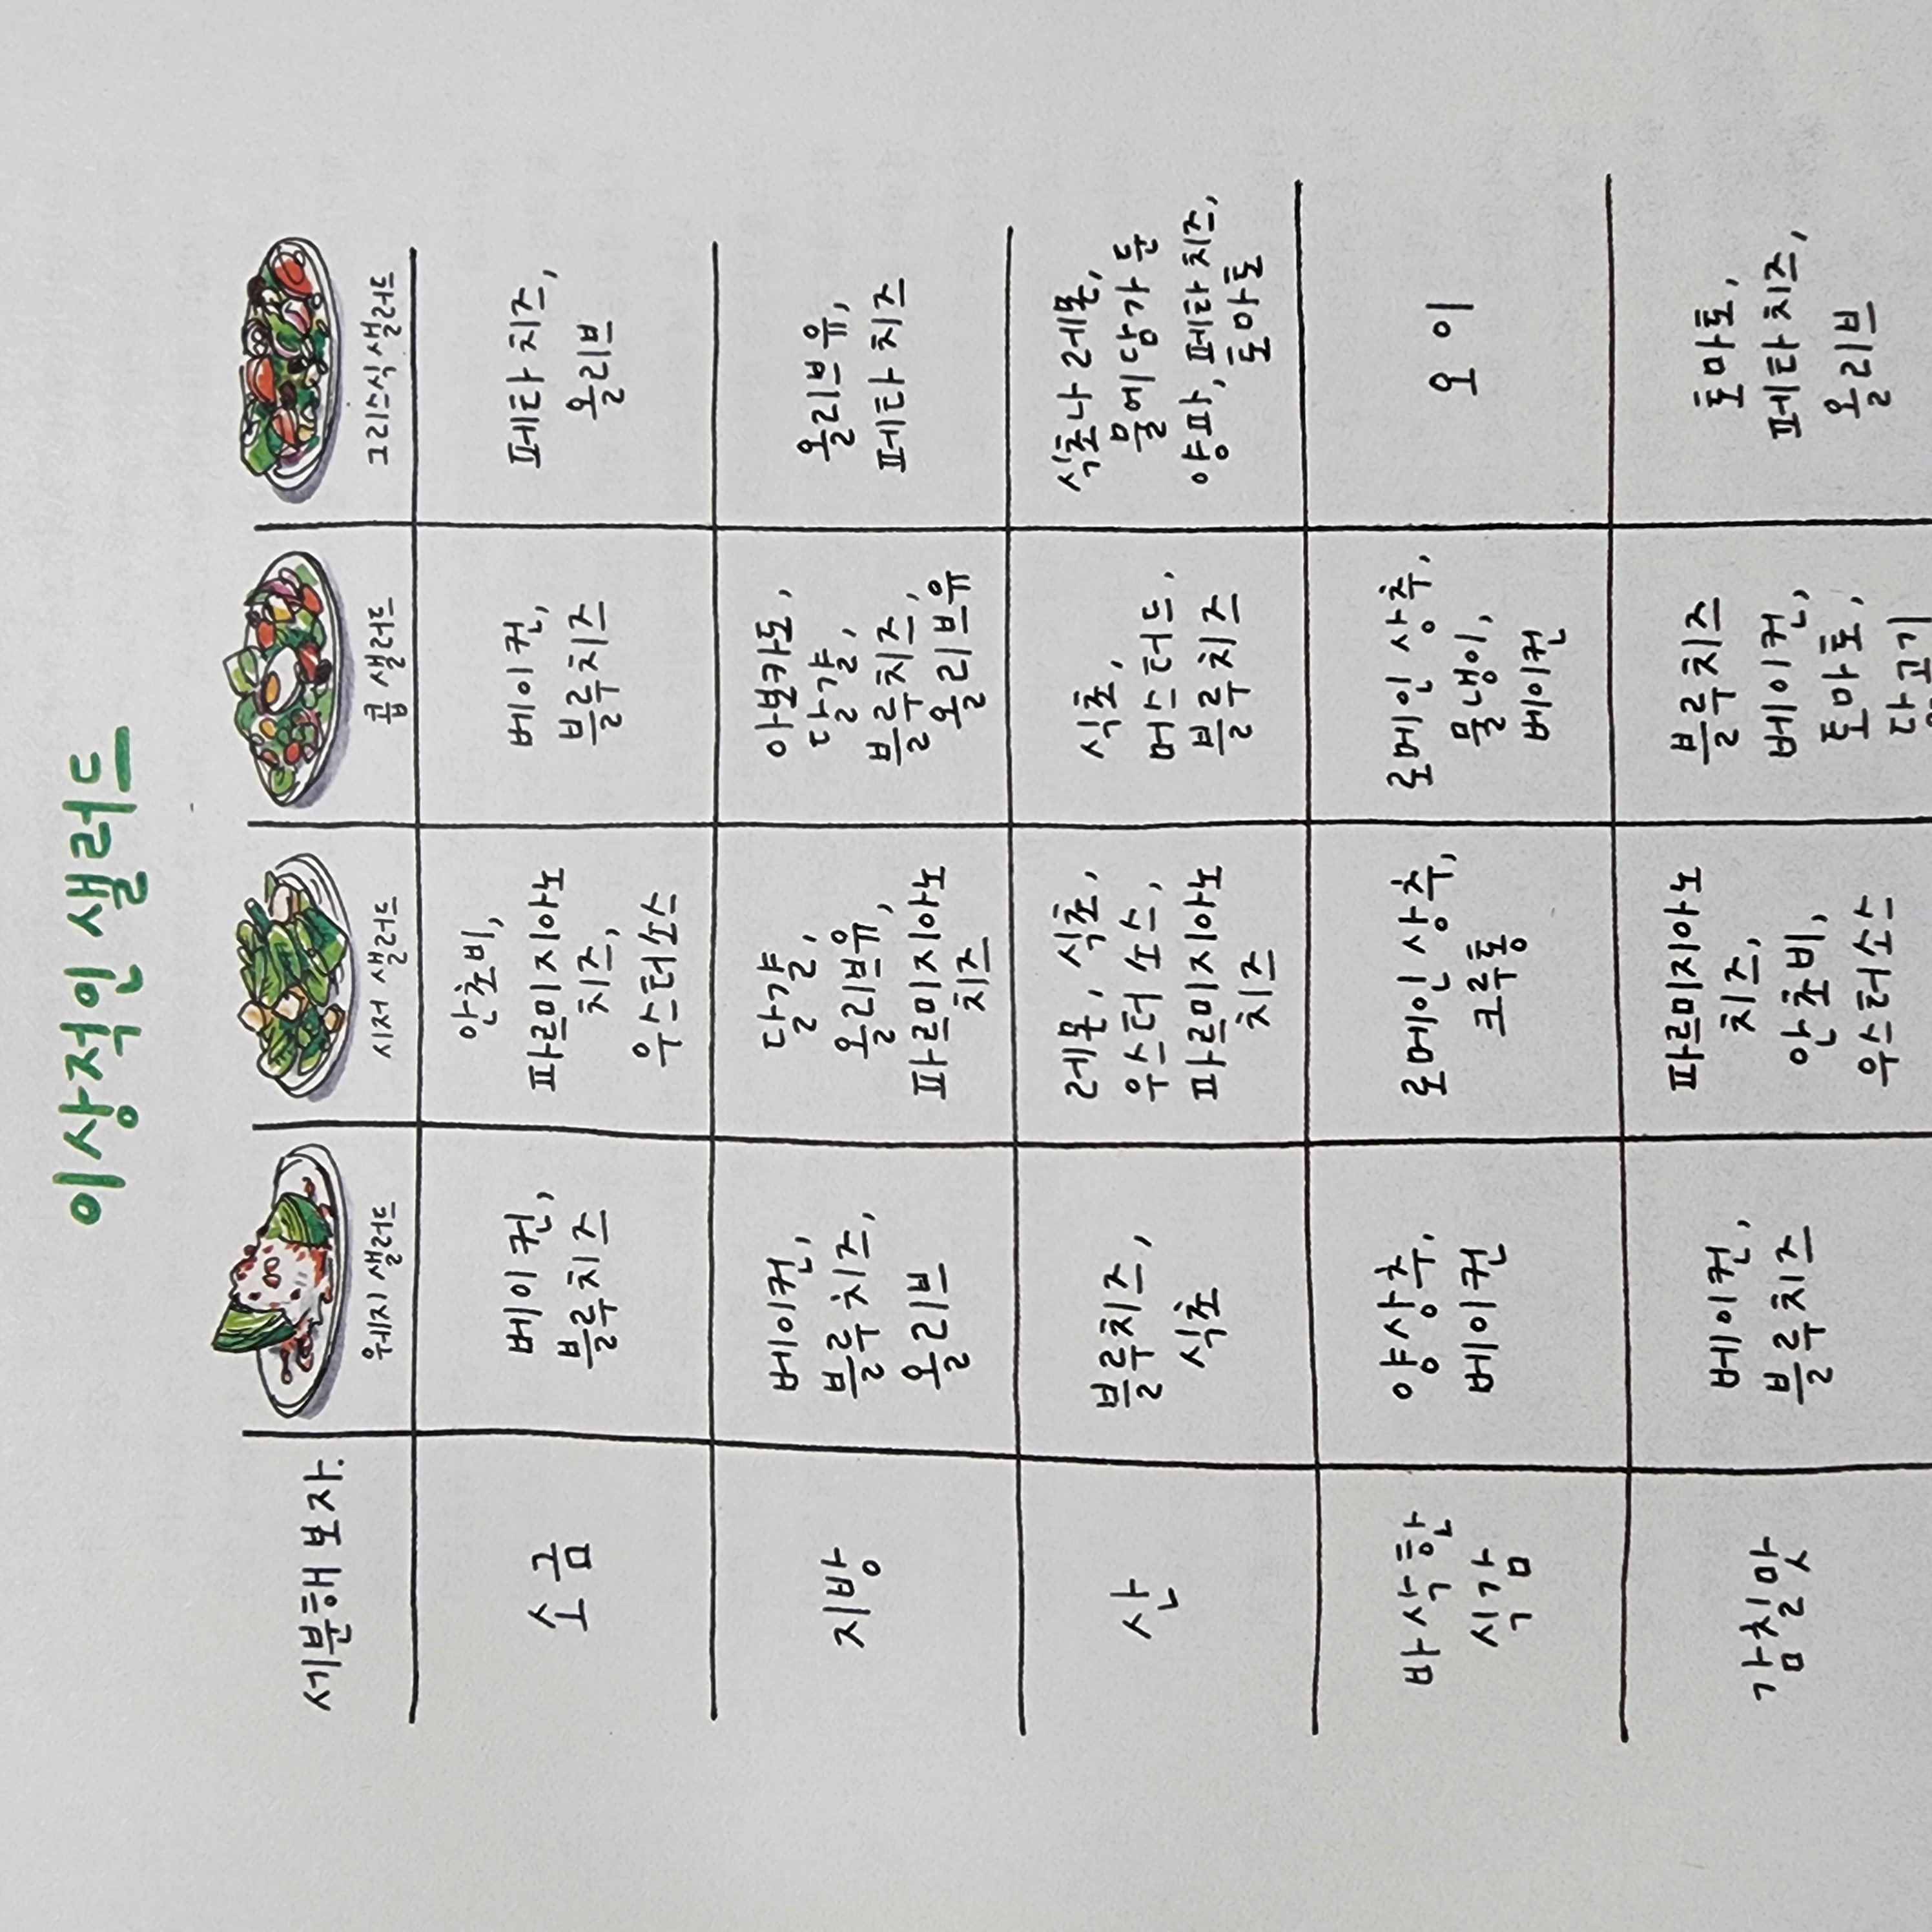 이상적인 샐러드
세분해 보자.
웨지 샐러드
시저 샐러드
콥 샐러드
그리스식 샐러드
소금
베이컨,
블루치즈
안초비,
파르미지아노
치즈,
우스터소스
베이컨,
블루치즈
페타 치즈,
올리브
지방
베이컨,
블루치즈,
올리브
달걀,
올리브유,
파르미지아노
치즈
아보카도,
달걀,
블루치즈,
올리브유
올리브유,
페타 치즈
산
블루치즈,
식초
레몬, 식초,
우스터 소스,
파르미지아노
치즈
식초,
머스터드,
블루치즈
식초나 레몬,
물에 담가 둔
양파, 페타 치즈,
토마토
바삭한
식감
양상추,
베이컨
로메인 상추,
크루통
로메인 상추,
물냉이,
베이컨
오이
감칠맛
베이컨,
블루치즈
파르미지아노
치즈,
안초비,
우스터소스
블루치즈
베이컨,
토마토,
닭고기
토마토,
페타 치즈,
올리브